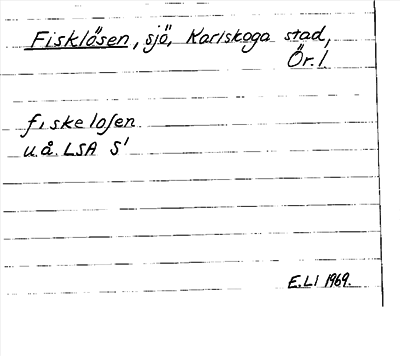 Fisklösen, sjö, Karlskoga stad,
Ör. l.
fiskelosen
u.å. LSA S'
E.LI 1969.